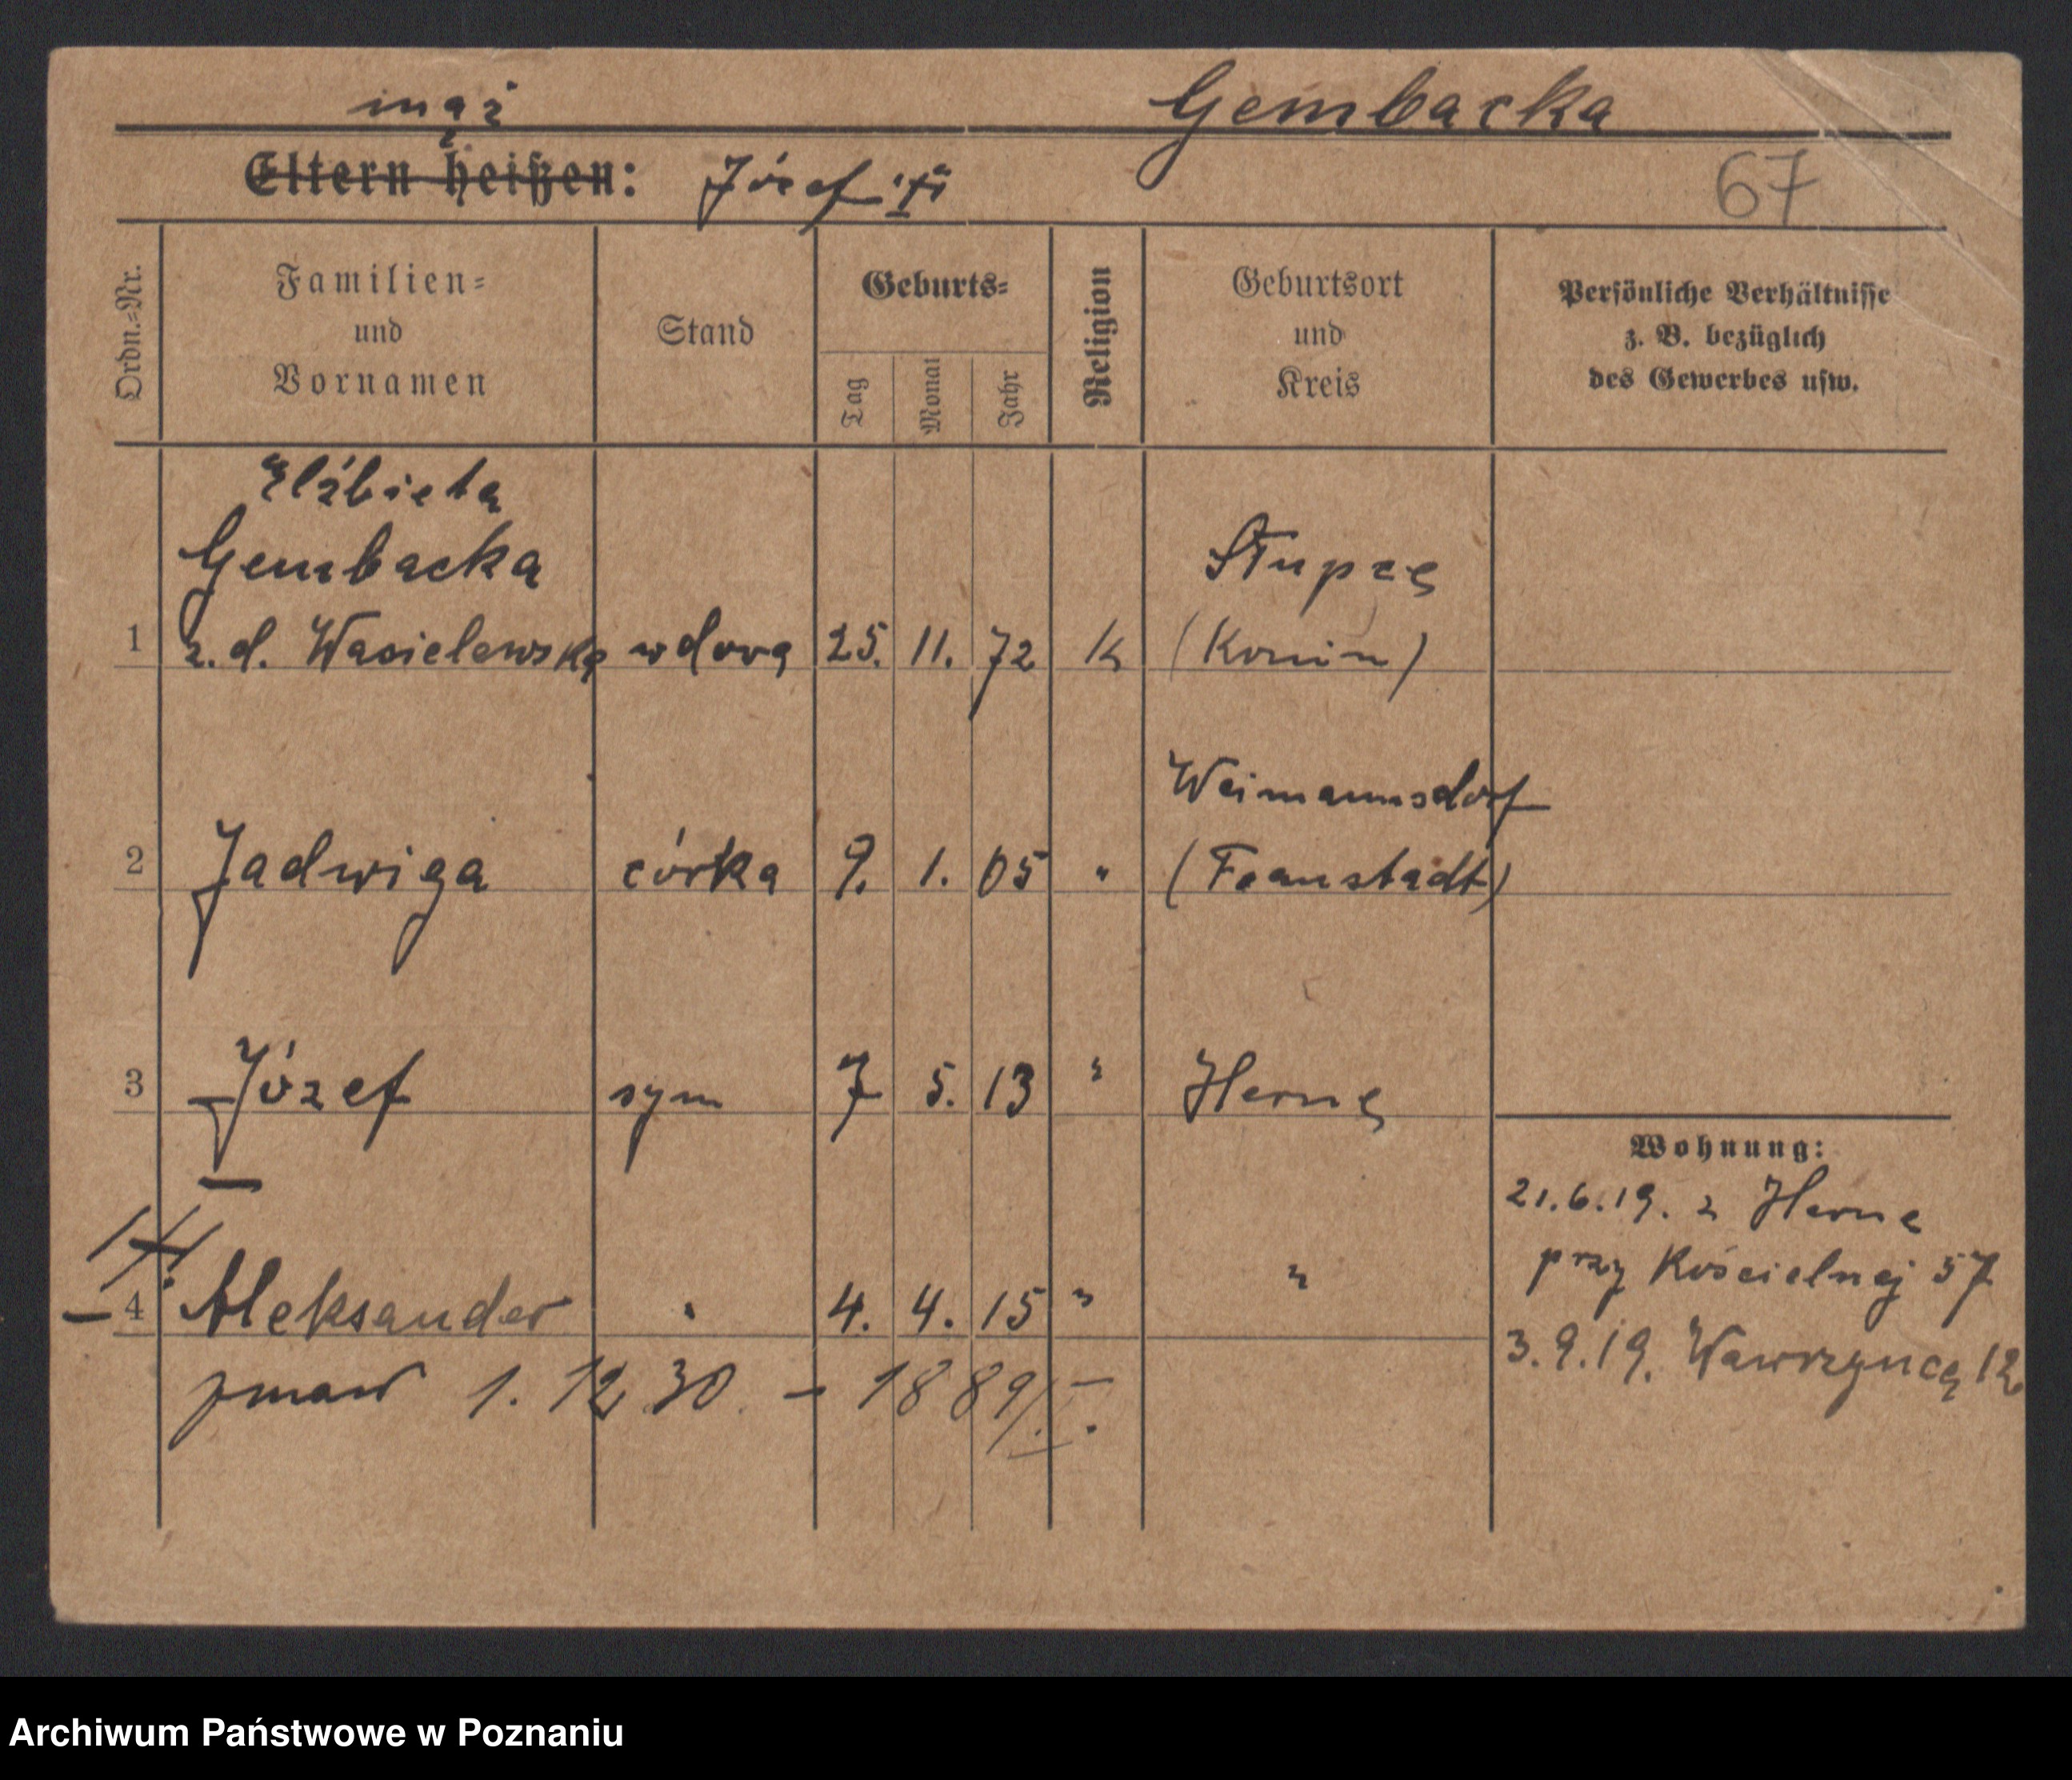 mąż Gembacka
Eltern heißen: Józef
67
Ordn.-Nr. Familien- und Vornamen Stand Geburts- Tag Monat Jahr Religion Geburtsort und Kreis Persönliche Verhältnisse z. B. bezüglich des Gewerbes usw.
Elżbieta
Gembacka Słupca
1 z. d. Wasielewska wdowa 25. 11. 72 K (Konin)
Weimannsdorf
2 Jadwiga córka 9. 1. 05 " (Fraustadt)
3 Józef syn 7 5. 13 " Herne
Wohnung:
21.6.19. z Herne
przy Kościelnej 57
4 Aleksander " 4. 4. 15 " "
3.9.19. Wawrzyńca 12
zmarł 1. 12 30. - 1889/I.
Archiwum Państwowe w Poznaniu